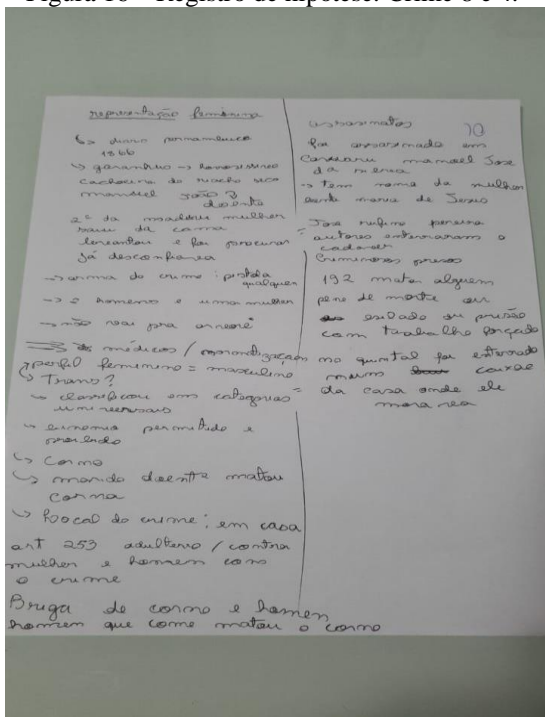 representação feminina
↳ diario pernambuco
1866
↳ garanhus →
cachoeira do riacho seco
manoel João 3
doente
2ª da mulher
saiu da cama
levantou e foi procurar
já desconfiança
→ arma do crime: pistola
qualquer
→ 2 homens e uma mulher
→ não vai pra
médicos /
perfil feminino = masculino
↳ Trans?
classificou em categorias
universais
permitido e
↳ Corno
↳ marido doente matou
↳ local do crime: em casa
art 253 adulterio / contra
mulher e homem
o crime
Briga de corno e homem
homem que come matou o corno
assassinatos
10
foi assassinado em
Caruaru manoel Jose
da
→ tem nome da mulher
maria de Jesus
Jose rufino pereira
= autores enterraram o
cadaver
Criminosos presos
192 matar alguem
pena de morte ou
exilado ou prisão
com trabalho forçado
no quintal foi enterrado
caixão
da casa onde ele
morava